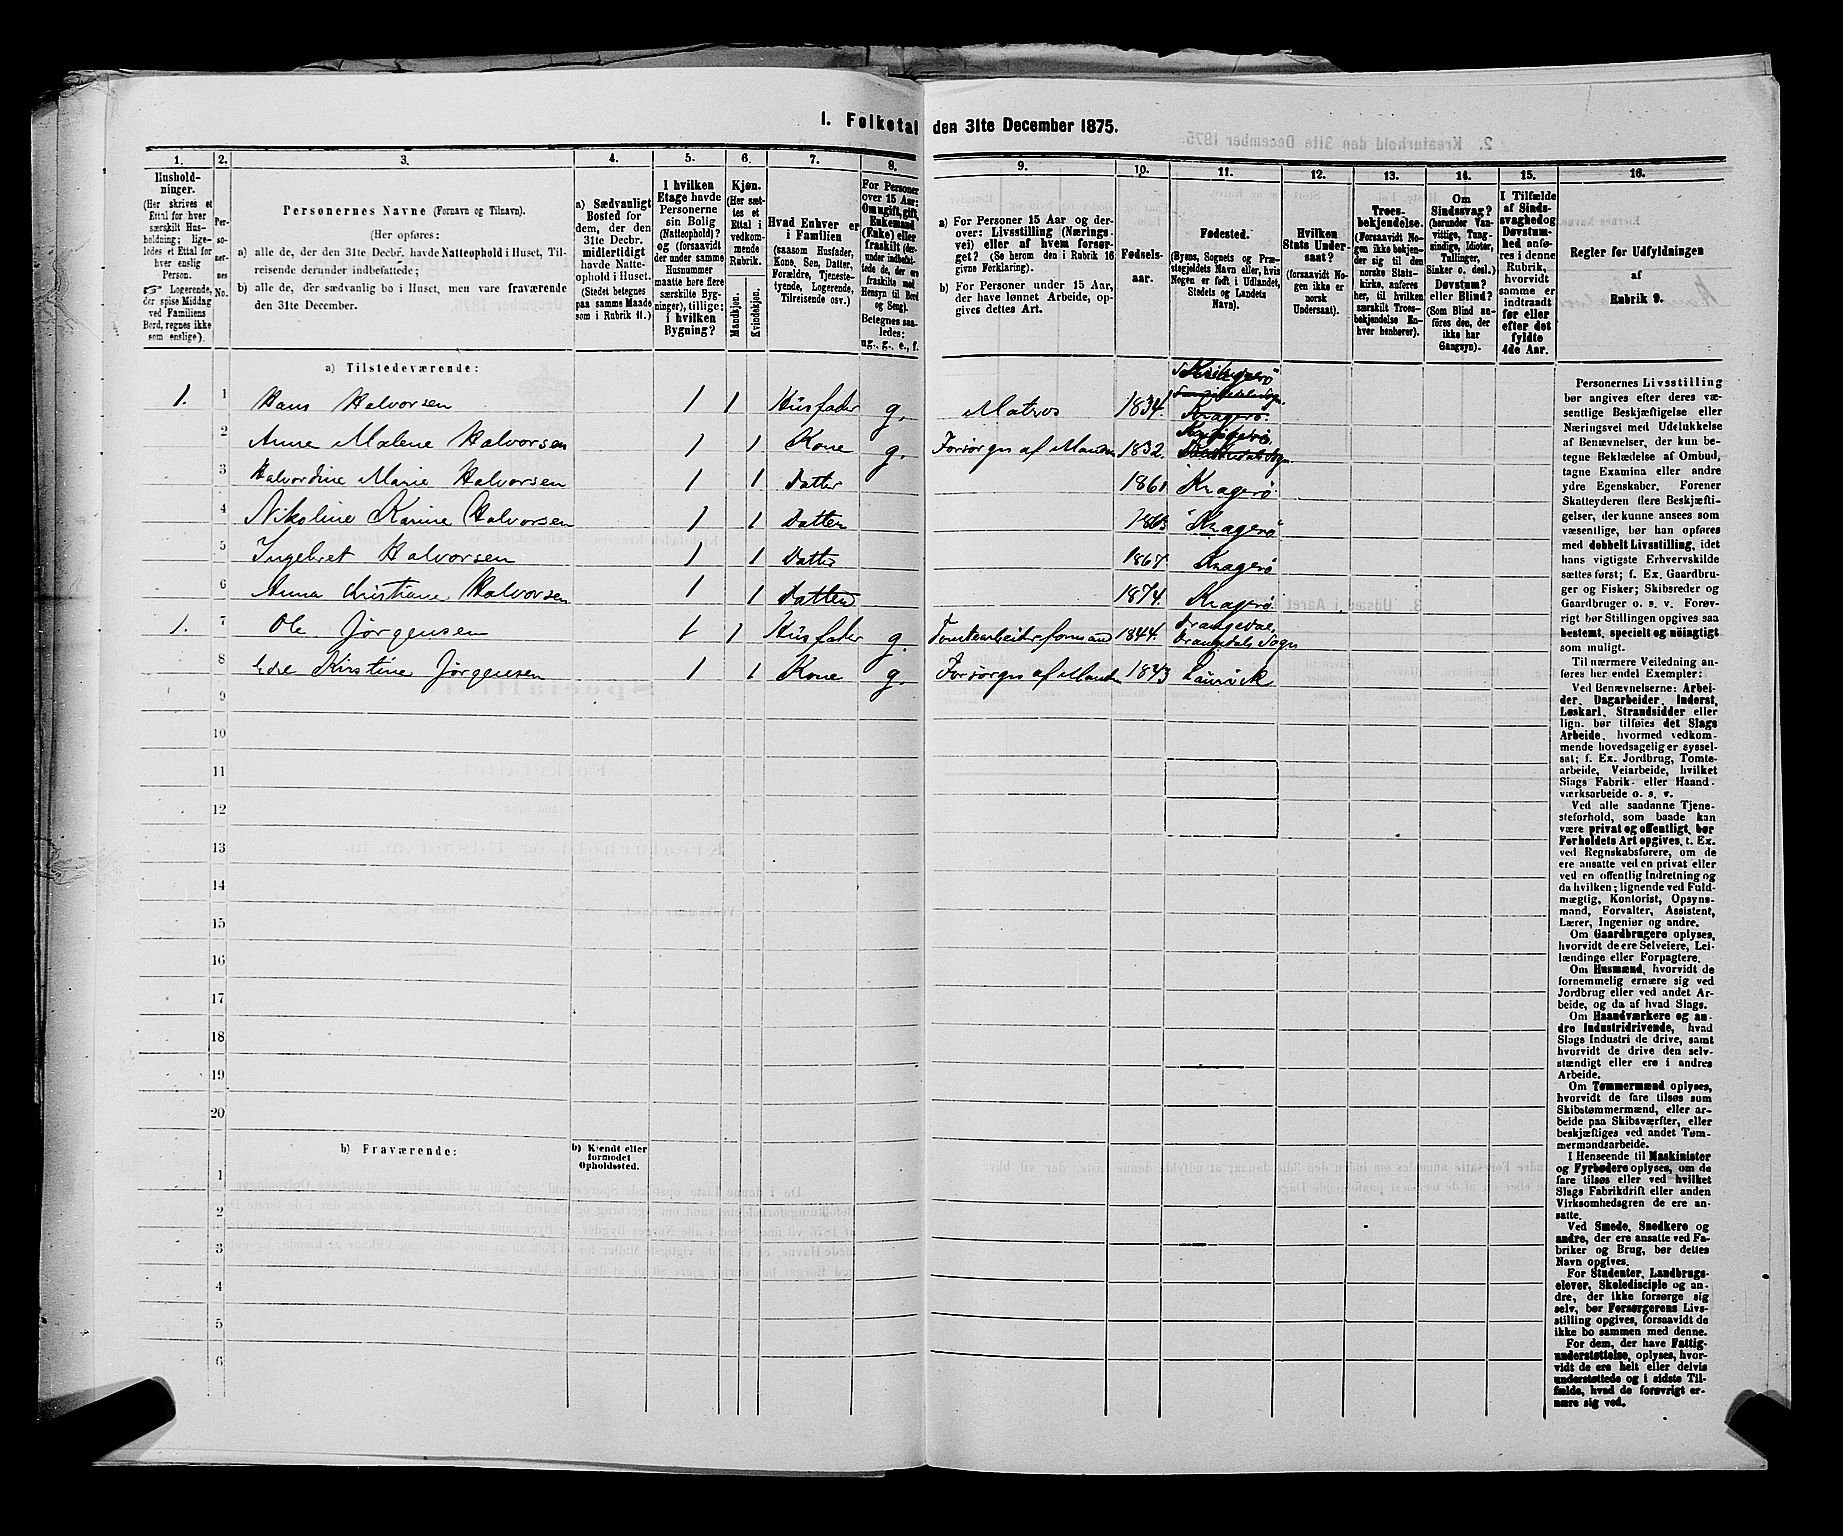 1. Folketal den 31te December 1875.
1. 2. 3. 4. 5. 6. 7. 8. 9. 10. 11. 12. 13. 14. 15. 16.
Hushold-
ninger.
(Her skrives et
Ettal for hver
særskilt Hus-
holdning; lige-
ledes et Ettal for
hver enslig
Person.
☞ Logerende,
der spise Middag
ved Familiens
Bord, regnes ikke
som enslige).
Per-
so-
ner-
nes
No.
Personernes Navne (Fornavn og Tilnavn).
(Her opføres:
a) alle de, der den 31te Decbr. havde Natteophold i Huset, Til-
reisende derunder indbefattede;
b) alle de, der sædvanlig bo i Huset, men vare fraværende
den 31te December.
a) Sædvanligt
Bosted for
dem, der den
31te Decbr.
midlertidigt
havde Natte-
ophold i Huset.
(Stedet betegnes
paa samme Maade
som i Rubrik 11.)
I hvilken
Etage havde
Personerne
sin Bolig
(Natteophold)?
og (forsaavidt
der under samme
Husnummer
maatte høre flere
særskilte Byg-
ninger), tillige:
i hvilken
Bygning?
Kjøn.
(Her sæt-
tes et
Ettal i
vedkom-
mende
Rubrik.
Mandkjøn.
Kvindekjøn.
Hvad Enhver er
i Familien
(saasom Husfader,
Kone, Søn, Datter,
Forældre, Tjeneste-
tyende, Logerende,
Tilreisende osv.)
For Personer
over 15 Aar:
Om ugift, gift,
Enkemand
(Enke) eller
fraskilt (der-
under indbefat-
tede de, der ere
fraskilte med
Hensyn til Bord
og Seng).
Betegnes saa-
ledes:
ug., g., e., f.
a) For Personer 15 Aar og der-
over: Livsstilling (Nærings-
vei) eller af hvem forsør-
get? (Se herom den i Rubrik 16
givne Forklaring).
b) For Personer under 15 Aar,
der have lønnet Arbeide, op-
gives dettes Art.
Fødsels-
aar.
Fødested.
(Byens, Sognets og Præ-
stegjeldets Navn eller, hvis
Nogen er født i Udlandet,
Stedets og Landets
Navn).
Hvilken
Stats Under-
saat?
(forsaavidt No-
gen ikke er
norsk
Undersaat).
Troes-
bekjendelse.
(Forsaavidt No-
gen ikke bekjen-
der sig til den
norske Stats-
kirke, anføres
her, til hvilken
særskilt Troes-
bekjendelse En-
hver henhører).
Om
Sindssvag?
(herunder Van-
vittige, Tung-
sindige, Idioter,
Tullinger,
Sinker o. desl.)
Døvstum?
eller Blind?
(Som Blind an-
føres den, der
ikke har
Gangsyn).
I Tilfælde
af Sinds-
svaghed og
Døvstum-
hed anfø-
res i denne
Rubrik,
hvorvidt
samme er
indtraadt
før eller
efter det
fyldte
4de Aar.
Regler for Udfyldningen
af
Rubrik 9.
a) Tilstedeværende:
1. 1 Hans Halvorsen 1 1 Husfader g. Matros 1834 Kragerø.
2 Anne Malene Halvorsen 1 1 Kone g. Forsørges af Manden 1832.
3 Halvordine Marie Halvorsen 1 1 Datter 1861 Kragerø
4 Nikoline Karine Halvorsen 1 1 Datter 1863 "Kragerø"
5 Ingebret Halvorsen 1 1 Datter 1867. Kragerø
6 Anna Kristiane Halvorsen 1 1 Datter 1874. Kragerø
1. 7 Ole Jørgensen 1 1 Husfader g. Tomtearbeidersformand 1844. Drangedal, Drangedals Sogn
8 Kirstine Jørgensen 1 1 Kone g. Forsørges af Manden 1843 Laurvik
9
10
11
12
13
14
15
16
17
18
19
20
b) Fraværende:
b) Kjendt eller
formodet
Opholdssted.
1
2
3
4
5
6
Personernes Livsstilling
bør angives efter deres væ-
sentlige Beskjæftigelse eller
Næringsvei med Udelukkelse
af Benævnelser, der kun be-
tegne Beklædelse af Ombud,
tagne Examina eller andre
ydre Egenskaber. Forener
Skatteyderen flere Beskjæfti-
gelser, der kunne ansees som
væsentlige, bør han opføres
med dobbelt Livsstilling, idet
hans vigtigste Erhvervskilde
sættes først; f. Ex. Gaardbru-
ger og Fisker; Skibsreder og
Gaardbruger o. s. v. Forøv-
rigt bør Stillingen opgives saa
bestemt, specielt og nöiagtigt
som muligt.
Til nærmere Veiledning an-
føres her endel Exempler:
Ved Benævnelserne: Arbei-
der, Dagarbeider, Inderst,
Løskarl, Strandsidder eller
lign. bør tilføies det Slags
Arbeide, hvormed vedkom-
mende hovedsagelig er syssel-
sat; f. Ex. Jordbrug, Tomte-
arbeide, Veiarbeide, hvilket
Slags Fabrik- eller Haand-
værksarbeide o. s. v.
Ved alle saadanne Tjene-
steforhold, som baade kan
være privat og offentligt, bør
Forholdets Art opgives, t. Ex.
ved Regnskabsførere, om de
ere ansatte ved en privat eller
ved en offentlig Indretning og
da hvilken; lignende ved Fuld-
mægtig, Kontorist, Opsyns-
mand, Forvalter, Assistent,
Lærer, Ingeniør og andre.
Om Gaardbrugere oplyses,
hvorvidt de ere Selveiere, Lei-
lændinge eller Forpagtere.
Om Husmænd, hvorvidt de
fornemmelig ernære sig ved
Jordbrug eller ved andet Ar-
beide, og da af hvad Slags.
Om Haandværkere og an-
dre Industridrivende, hvad
Slags Industri de drive, samt
hvorvidt de drive den selv-
stændigt eller ere i andres
Arbeide.
Om Tømmermænd oplyses,
hvorvidt de fare tilsøs som
Skibstømmermænd, eller ar-
beide paa Skibsværfter, eller
beskjæftiges ved andet Tøm-
mermandsarbeide.
I Henseende til Maskinister
og Fyrbødere oplyses, om de
fare tilsøs eller ved hvilket
Slags Fabrikdrift eller anden
Virksomhedsgren de ere an-
satte.
Ved Smede, Snedkere og
andre, der ere ansatte ved Fa-
briker og Brug, bør dettes
Navn opgives.
For Studenter, Landbrugs-
elever, Skoledisciple og an-
dre, der ikke forsørge sig
selv, bør Forsørgerens Livs-
stilling opgives, forsaavidt de
ikke bo sammen med denne.
For dem, der have Fattig-
understøttelse, oplyses, hvor-
vidt de ere helt eller delvis
understøttede og i sidste Til-
fælde, hvad de forøvrigt er-
nære sig ved.